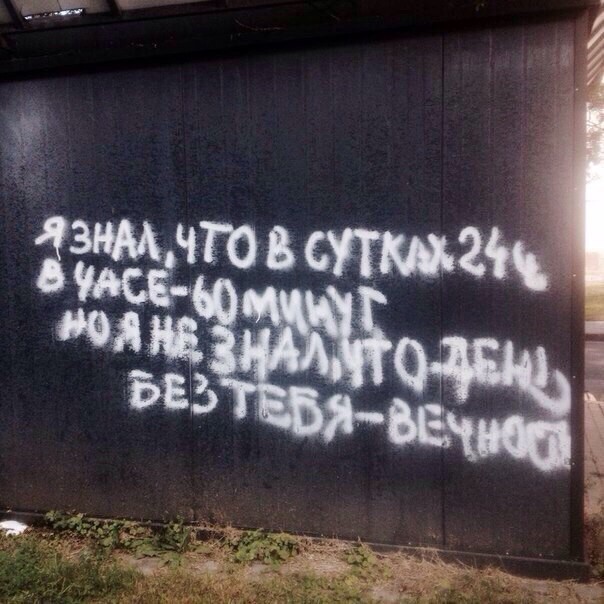 Я ЗНАЛ, ЧТО В СУТКАХ 24 Ч
В ЧАСЕ-60 МИНУТ
НО Я НЕ ЗНАЛ, ЧТО-ДЕНЬ
БЕЗ ТЕБЯ-ВЕЧНОСТЬ